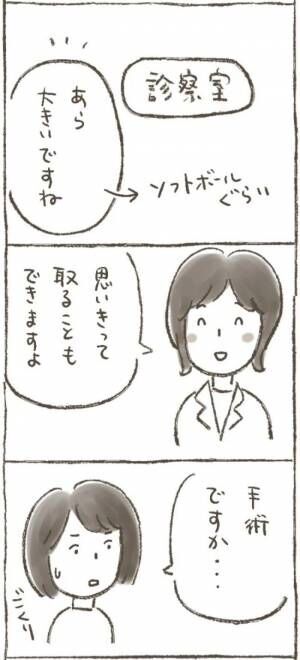 診察室
あら
大きいですね
ソフトボール
ぐらい
思いきって
取ることも
できますよ
手術
ですか・・・
ごくり